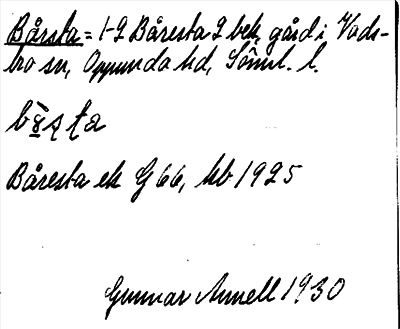 Bårsta = 1-2 Båresta 2 bek, gård i Vads-
bro sn, Oppunda hd, Söml. l.
Båresta ek G 66, kb 1925
Gunnar Annell 1930